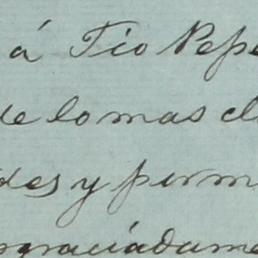 á Tio Pepe
de lo mas cl
des y perm
graciadame